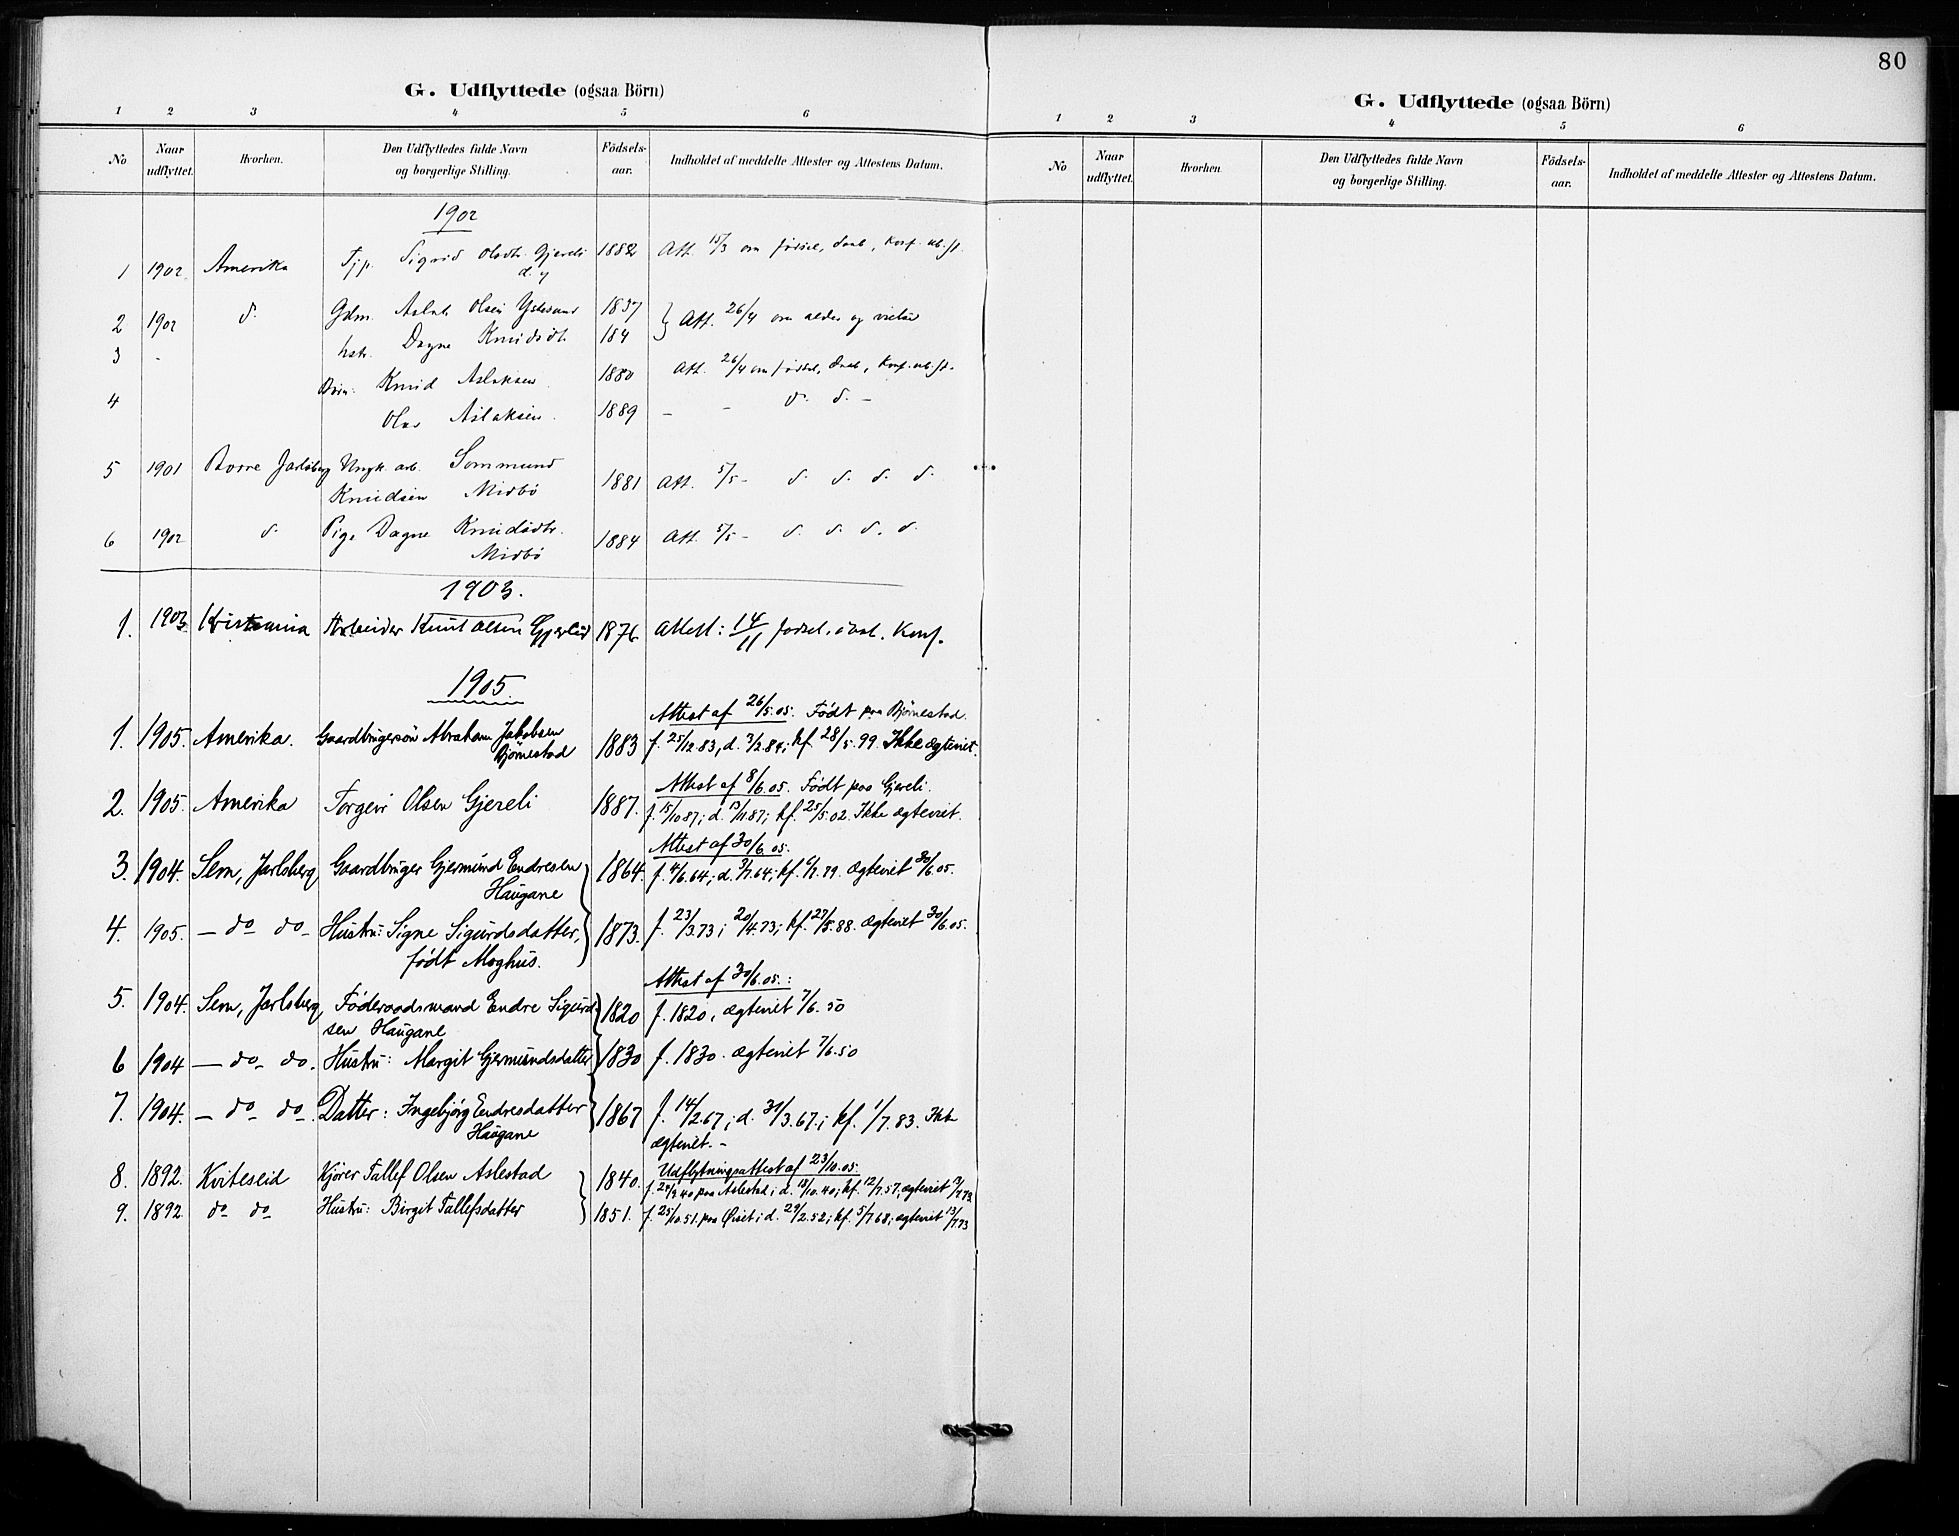 80
G. Udflyttede (ogsaa Börn)
1 2 3 4 5 6
No Naar udflyttet. Hvorhen. Den Udflyttedes fulde Navn og borgerlige Stilling. Födsels-aar. Indholdet af meddelte Attester og Attestens Datum.
1902
1 1902 Amerika Sigrid Olsdtr. Gjereli 1882 Att. 15/3 om fødsel, daab, Konf.
2 1902 d. Gdm. Aslak Olsen 1837 Att. 26/4 om alder og vielse
3 - hstr. Dagne Knudsdtr. 184
Børn: Knud Aslaksen 1880 Att. 26/4 om fødsel, daab, Konf.
4 Olav Aslaksen. 1889 - - d. d. -
5 1901 Borre Jarlsberg Ungk. arb.
Knudsen Midbö 1881 Att. 5/5 - d. d. d. d.
6 1902 d. Pige Dagne Knudsdtr. 1884 Att. 5/5 - d. d. d. d.
Midbö
1903.
1. 1903 Kristiania Arbeider Knut Olsen Gjerlid 1876 Attest: 14/11 fødsel, daab. Konf.
1905.
Attest af 26/5.05. Født paa Bjørnestad.
1. 1905. Amerika. Gaardbrugersøn Abraham Jakobsen 1883 f. 25/12.83, d. 3/2.84; kf. 28/5.99. Ikke ægteviet.
Bjørnestad
Attest af 8/6.05. Født paa Gjereli.
2. 1905. Amerika Torgeir Olsen Gjereli 1887. f. 15/10 87; d. 13/11 87; kf. 25/5.02. Ikke ægteviet.
Attest af 30/6.05.
3. 1904. Sem, Jarlsberg Gaardbruger Gjermund Endresen 1864. f. 4/6.64; d. 3/7.64; kf. 79. Ægteviet 30/6.05.
Haugane
4. 1905. — do do — Hustru: Signe Sigurdsdatter, 1873. f. 23/3.73; 20/4.73; kf. 27/5.88. Ægteviet 30/6.05.
født Moghus.
Attest af 30/6.05.:
5. 1904. Sem, Jarlsberg, Føderaadsmand Endre Sigurd- 1820 f. 1820, ægteviet 7/6.50
sen Haugane
6 1904 — do — do. Hustru: Margit Gjermundsdatter 1830 f. 1830. Ægteviet 7/6.50
7. 1904. — do — do —. Datter: Ingebjørg Endresdatter 1867 f. 14/2.67; d. 31/3.67.; kf. 1/7.83. Ikke
Haugane ægteviet. -
Udflytningsattest af 23/10.05:
8. 1892. Kviteseid Kjører Tallef Olsen Aslestad 1840. f. 24/9 40 paa Aslestad; d. 18/10.40; kf. 12/7.57; ægteviet 13/7 73
9. 1892 do do Hustru: Birgit Tallefsdatter 1851. f. 25/10.51. paa d. 29/2.52; kf. 5/7 68; ægteviet 13/7 73
G. Udflyttede (ogsaa Börn)
1 2 3 4 5 6
No Naar udflyttet. Hvorhen Den Udflyttedes fulde Navn og borgerlige Stilling. Födsels-aar. Indholdet af meddelte Attester og Attestens Datum.